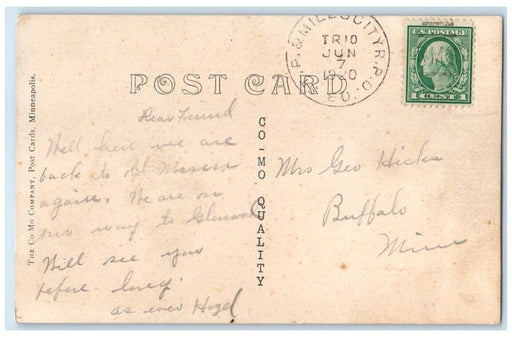 P. & MILES CITY R.P.O.
TR 10
JUN
7
1920
E.D.
U.S. POSTAGE
1 CENT 1
POST CARD
THE CO-MO COMPANY, Post Cards, Minneapolis.
CO-MO QUALITY
Dear Friend
Well here we are
back to old
again. We are on
our way to Glenwood
Will see you
before long.
as ever Hazel
Mrs Geo Hicks
Buffalo
Minn